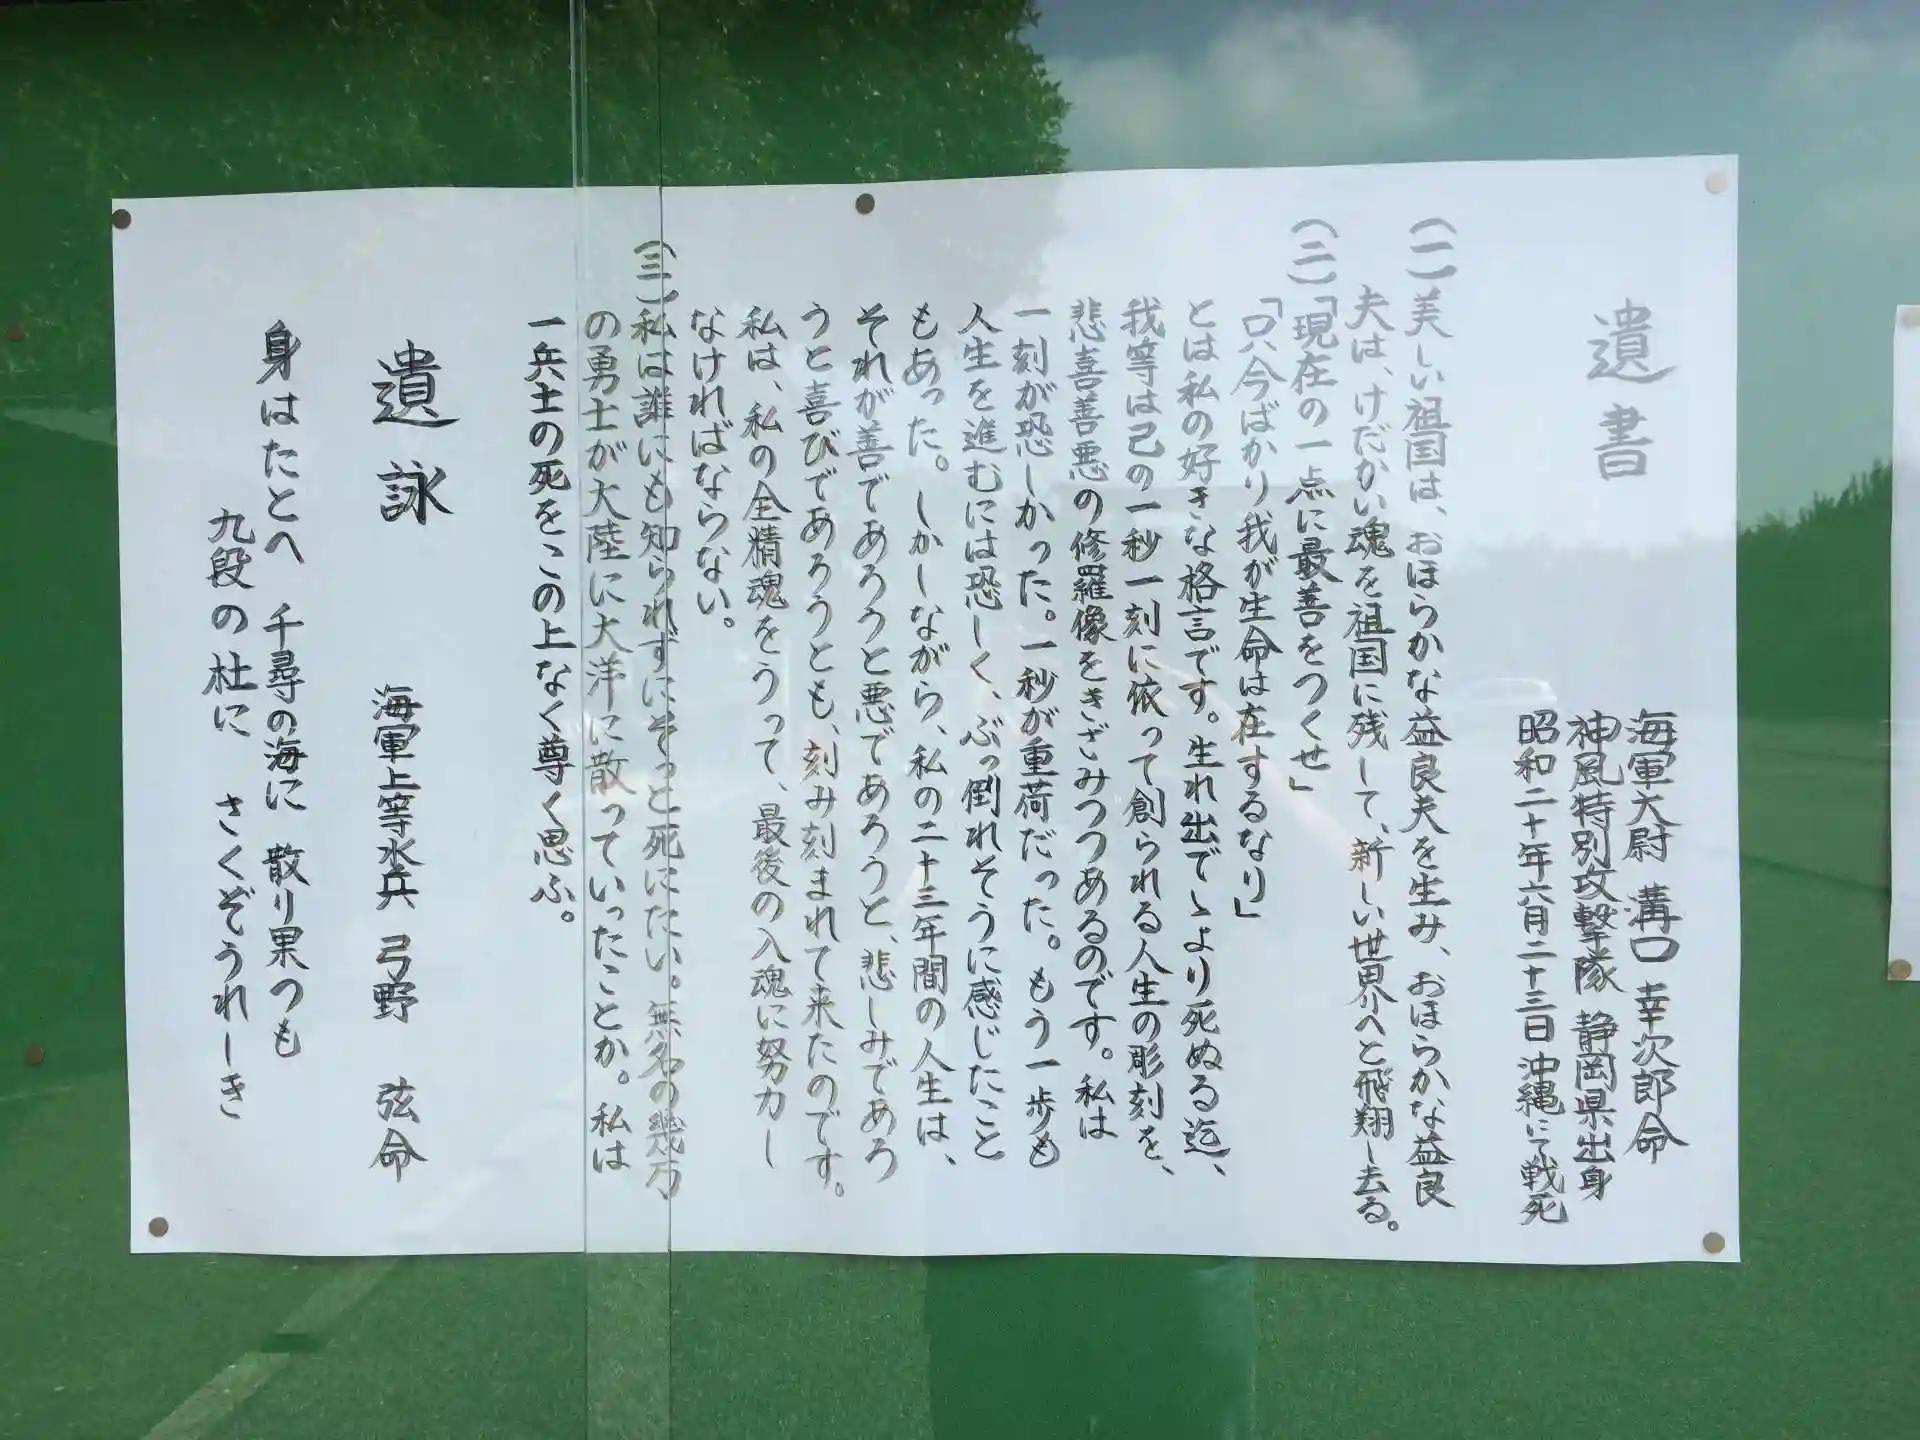 遺書
海軍大尉 溝口 幸次郎命
神風特別攻撃隊 静岡県出身
昭和二十年六月二十三日沖縄にて戦死
(一)美しい祖国は、おほらかな益良夫を生み、おほらかな益良
夫は、けだかい魂を祖国に残して、新しい世界へと飛翔し去る。
(二)「現在の一点に最善をつくせ」
「只今ばかり我が生命は在するなり」
とは私の好きな格言です。生れ出でゝより死ぬる迄、
我等は己の一秒一刻に依って創られる人生の彫刻を、
悲喜善悪の修羅像をきざみつつあるのです。私は
一刻が恐しかった。一秒が重荷だった。もう一歩も
人生を進むには恐しく、ぶっ倒れそうに感じたこと
もあった。しかしながら、私の二十三年間の人生は、
それが善であろうと悪であろうと、悲しみであろ
うと喜びであろうとも、刻み刻まれて来たのです。
私は、私の全精魂をうって、最後の入魂に努力し
なければならない。
(三)私は誰にも知られずにそっと死にたい。無名の幾万
の勇士が大陸に大洋に散っていったことか。私は
一兵士の死をこの上なく尊く思ふ。
遺詠
海軍上等水兵 弓野 弦命
身はたとへ 千尋の海に 散り果つも
九段の杜に さくぞうれしき